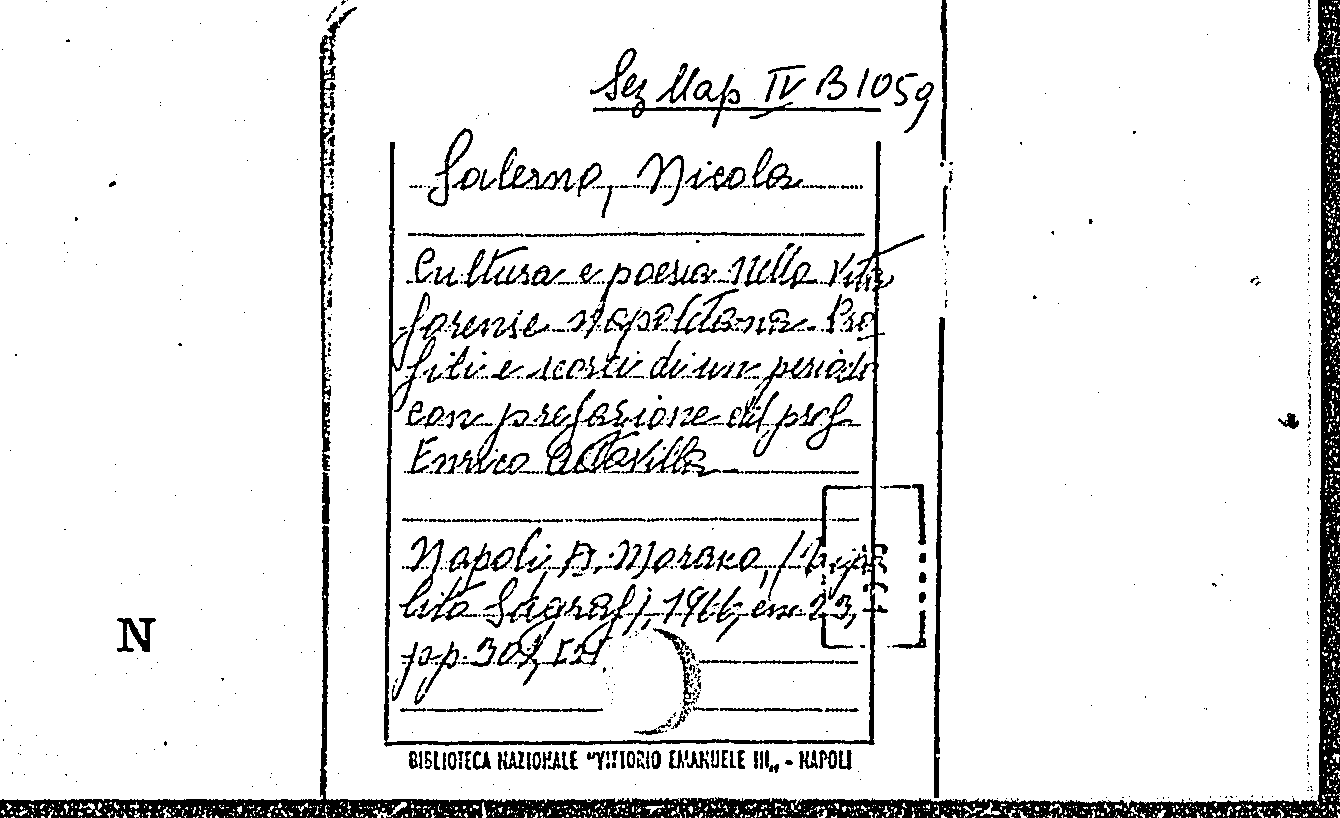 Sez Nap IV B 1059
Salerno, Nicola
Cultura e poesia nella vita
forense napoletana. Pro
fili e scorci di un periodo
con prefazione del prof
Enrico Altavilla
Napoli, A. Morano, (Tipo
lito Sagraf), 1966, cm 23,
pp. 301,
N
BIBLIOTECA NAZIONALE "VITTORIO EMANUELE III„ - NAPOLI